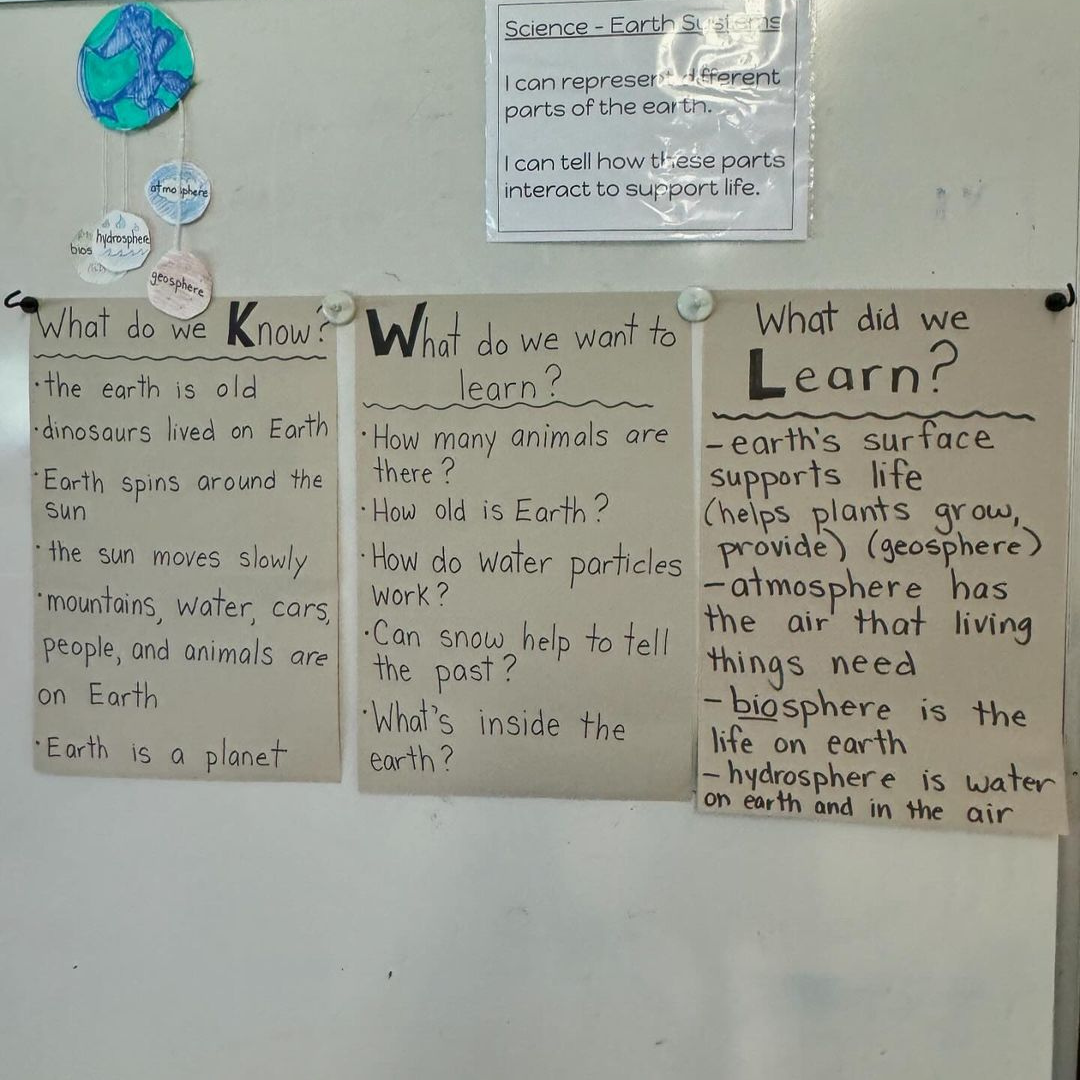 Science - Earth Systems
I can represent different
parts of the earth.
I can tell how these parts
interact to support life.
atmosphere
hydrosphere
bios
geosphere
What do we Know?
·the earth is old
·dinosaurs lived on Earth
·Earth spins around the
sun
·the sun moves slowly
·mountains, water, cars,
people, and animals are
on Earth
·Earth is a planet
What do we want to
learn?
·How many animals are
there?
·How old is Earth?
·How do water particles
work?
·Can snow help to tell
the past?
·What's inside the
earth?
What did we
Learn?
-earth's surface
supports life
(helps plants grow,
provide) (geosphere)
-atmosphere has
the air that living
things need
-biosphere is the
life on earth
-hydrosphere is water
on earth and in the air